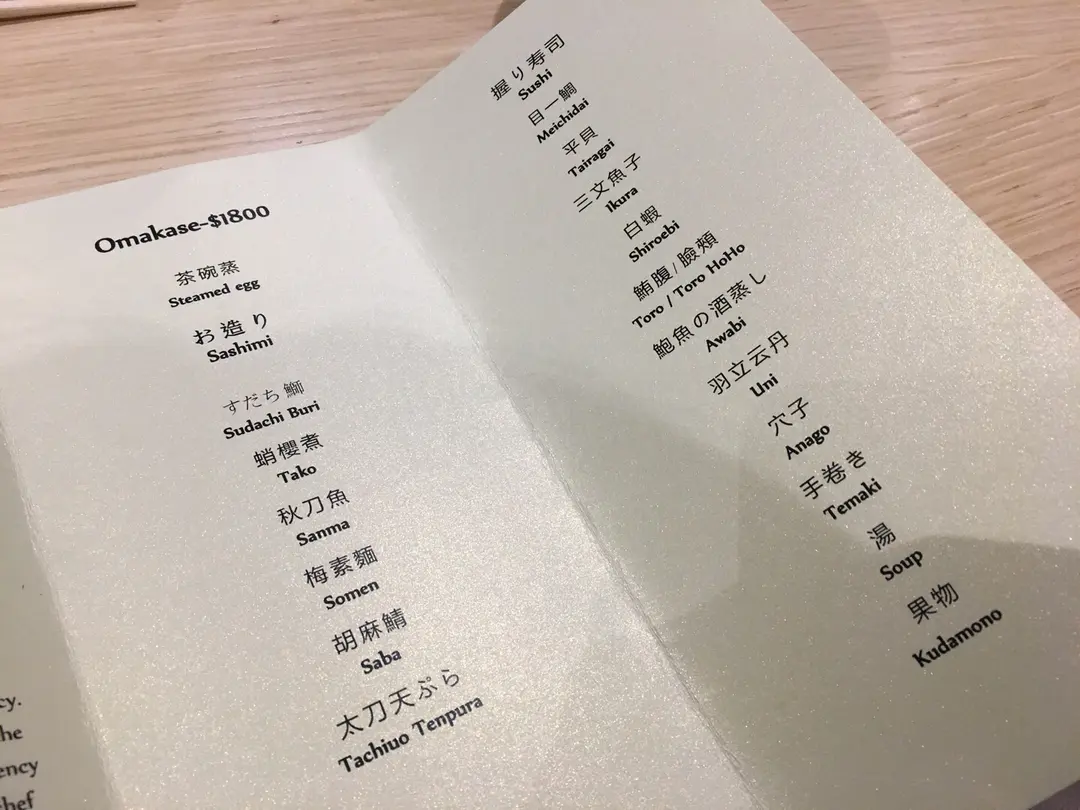 cy.
he
ency
hef
Omakase-$1800
茶碗蒸
Steamed egg
お造り
Sashimi
すだち鰤
Sudachi Buri
蛸櫻煮
Tako
秋刀魚
Sanma
梅素麵
Somen
胡麻鯖
Saba
太刀天ぷら
Tachiuo Tenpura
握り寿司
Sushi
目一鯛
Meichidai
平貝
Tairagai
三文魚子
Ikura
白蝦
Shiroebi
鮪腹/臉頰
Toro / Toro HoHo
鮑魚の酒蒸し
Awabi
羽立云丹
Uni
穴子
Anago
手卷き
Temaki
湯
Soup
果物
Kudamono